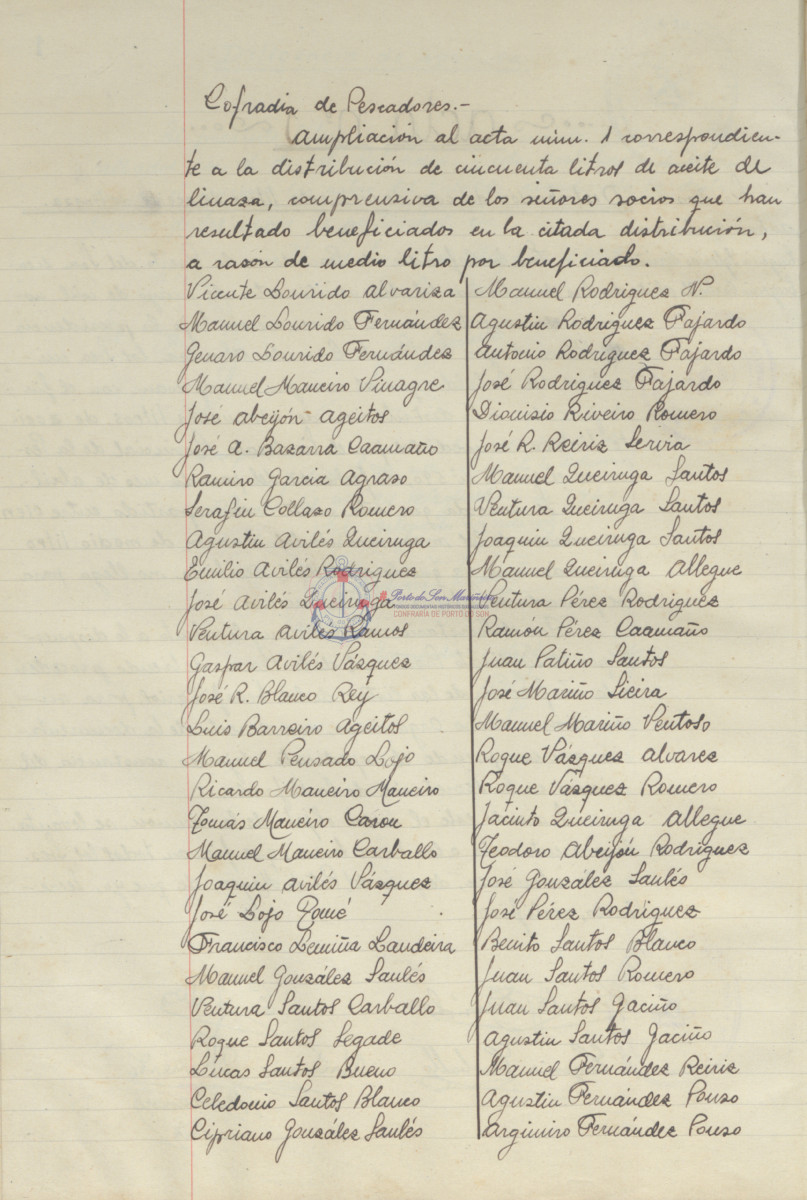 Cofradia de Pescadores.-
Ampliación al acta núm. 1 correspondien-
te a la distribución de cincuenta litros de aceite de
linaza, comprensiva de los señores socios que han
resultado beneficiados en la citada distribución,
a rasón de medio litro por beneficiado.
Vicente Lourido Alvariza
Manuel Lourido Fernández
Genaro Lourido Fernández
Manuel Maneiro Vinagre
José Abeijón Ageitos
José A. Bazarra Caamaño
Ramiro Garcia Agraso
Serafin Collazo Romero
Agustin Avilés Queiruga
Emilio Avilés Rodriguez
José Avilés Queiruga
Ventura Avilés Ramos
Gaspar Avilés Vásquez
José R. Blanco Rey
Luis Barreiro Ageitos
Manuel Pensado Lojo
Ricardo Maneiro Maneiro
Tomás Maneiro Carou
Manuel Maneiro Carballo
Joaquin Avilés Vásquez
José Lojo Tomé
Francisco Lemiña Landeira
Manuel González Saulés
Ventura Santos Carballo
Roque Santos Segade
Lucas Santos Bueno
Celedonio Santos Blanco
Cipriano González Saulés
Manuel Rodriguez N.
Agustin Rodriguez Fajardo
Antonio Rodriguez Fajardo
José Rodriguez Fajardo
Dionisio Riveiro Romero
José R. Reiriz Servia
Manuel Queiruga Santos
Ventura Queiruga Santos
Joaquin Queiruga Santos
Manuel Queiruga Allegue
Ventura Pérez Rodriguez
Ramón Pérez Caamaño
Juan Patiño Santos
José Mariño Sieira
Manuel Mariño Ventoso
Roque Vásquez Alvarez
Roque Vásquez Romero
Jacinto Queiruga Allegue
Teodoro Abeijón Rodriguez
José González Saulés
José Pérez Rodriguez
Benito Santos Blanco
Juan Santos Romero
Juan Santos Gaciño
Agustin Santos Gaciño
Manuel Fernández Reiriz
Agustin Fernández Pouso
Argimiro Fernández Pouso
CONFRARÍA DE PORTO DO SON